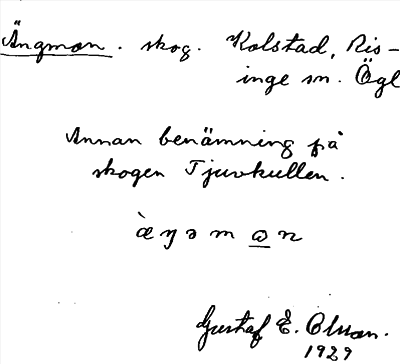 Ängmon. skog. Kolstad, Ris-
inge sn. Ögl
Annan benämning på
skogen Tjuvkullen.
Gustaf E. Olsson.
1929